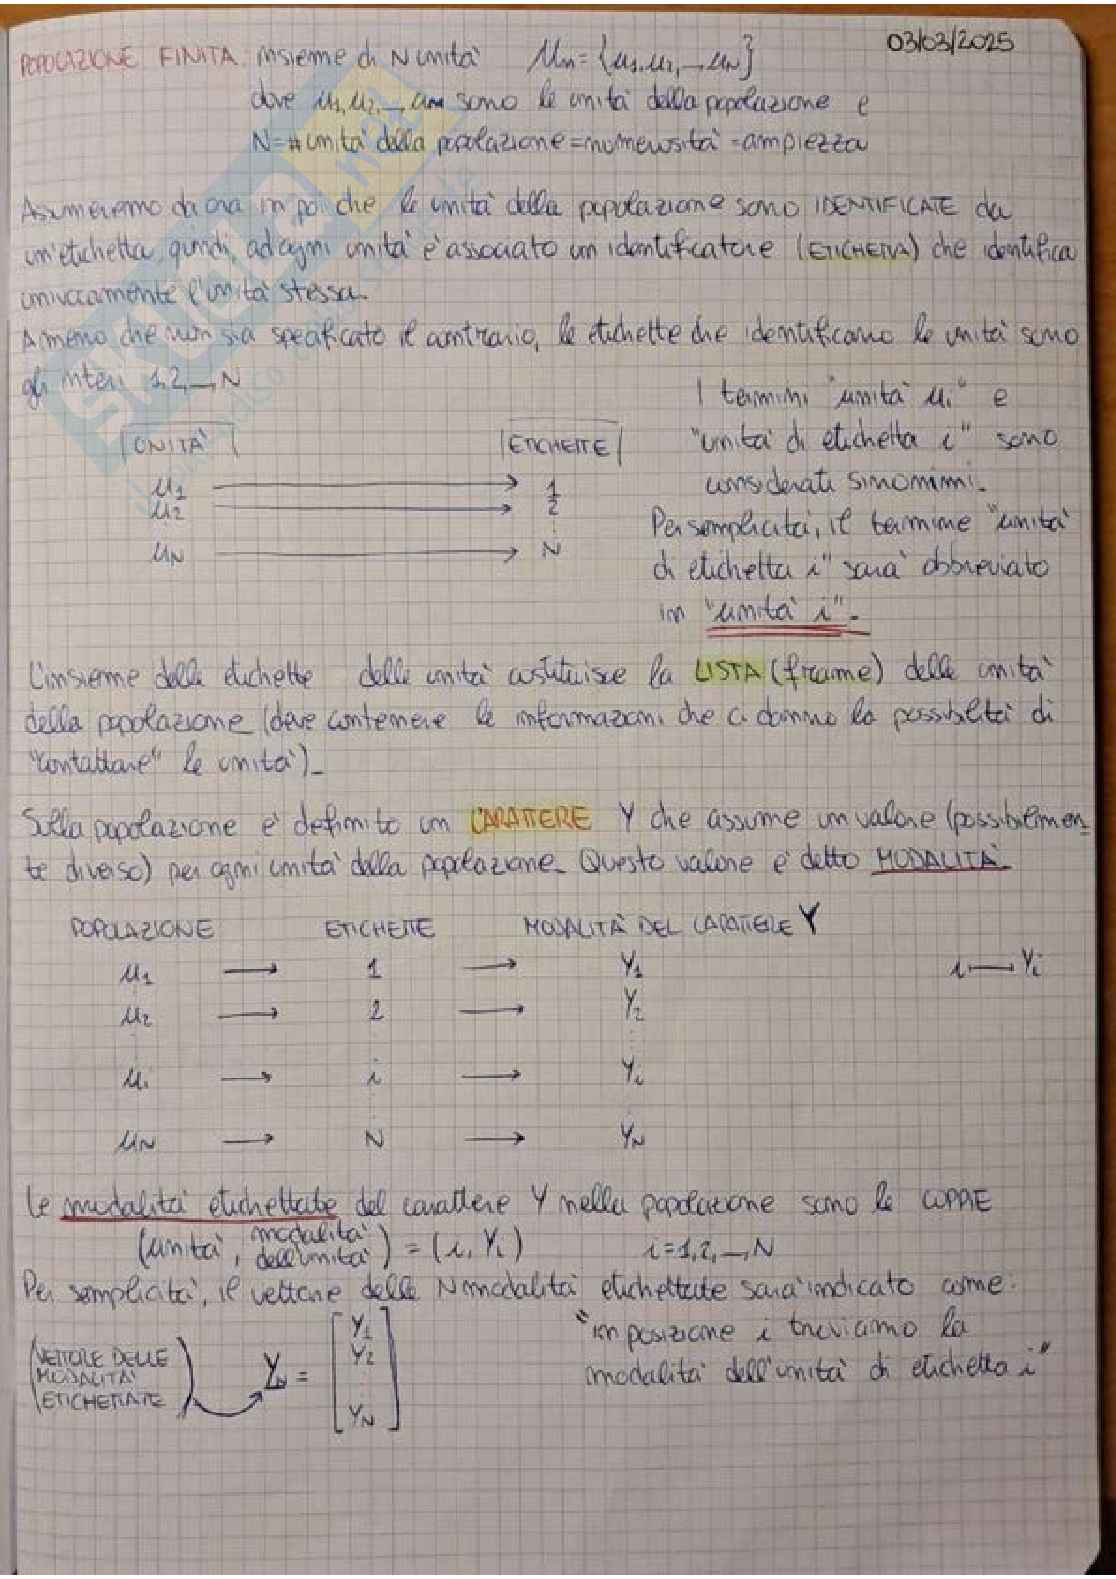 03/03/2025
POPOLAZIONE FINITA: insieme di N unità Un = {u1, u2, ..., uN}
dove u1, u2, ..., uN sono le unità della popolazione e
N = # unità della popolazione = numerosità = ampiezza
Assumeremo da ora in poi che le unità della popolazione sono IDENTIFICATE da
un'etichetta, quindi, ad ogni unità è associato un identificatore (ETICHETTA) che identifica
univocamente l'unità stessa.
A meno che non sia specificato il contrario, le etichette che identificano le unità sono
gli interi 1, 2, ..., N
UNITÀ ETICHETTE
u1 → 1
u2 → 2
uN → N
I termini "unità ui" e
"unità di etichetta i" sono
considerati sinonimi.
Per semplicità, il termine "unità
di etichetta i" sarà abbreviato
in "unità i".
L'insieme delle etichette delle unità costituisce la LISTA (frame) delle unità
della popolazione (deve contenere le informazioni che ci danno la possibilità di
"contattare" le unità).
Sulla popolazione è definito un CARATTERE Y che assume un valore (possibilmen-
te diverso) per ogni unità della popolazione. Questo valore è detto MODALITÀ.
POPOLAZIONE ETICHETTE MODALITÀ DEL CARATTERE Y
u1 → 1 → Y1 i — Yi
u2 → 2 → Y2
ui → i → Yi
uN → N → YN
Le modalità etichettate del carattere Y nella popolazione sono le COPPIE
(unità, modalità dell'unità) = (i, Yi) i = 1, 2, ..., N
Per semplicità, il vettore delle N modalità etichettate sarà indicato come:
(VETTORE DELLE
MODALITÀ
ETICHETTATE)
YN = [Y1
Y2
⋮
YN]
"in posizione i troviamo la
modalità dell'unità di etichetta i"